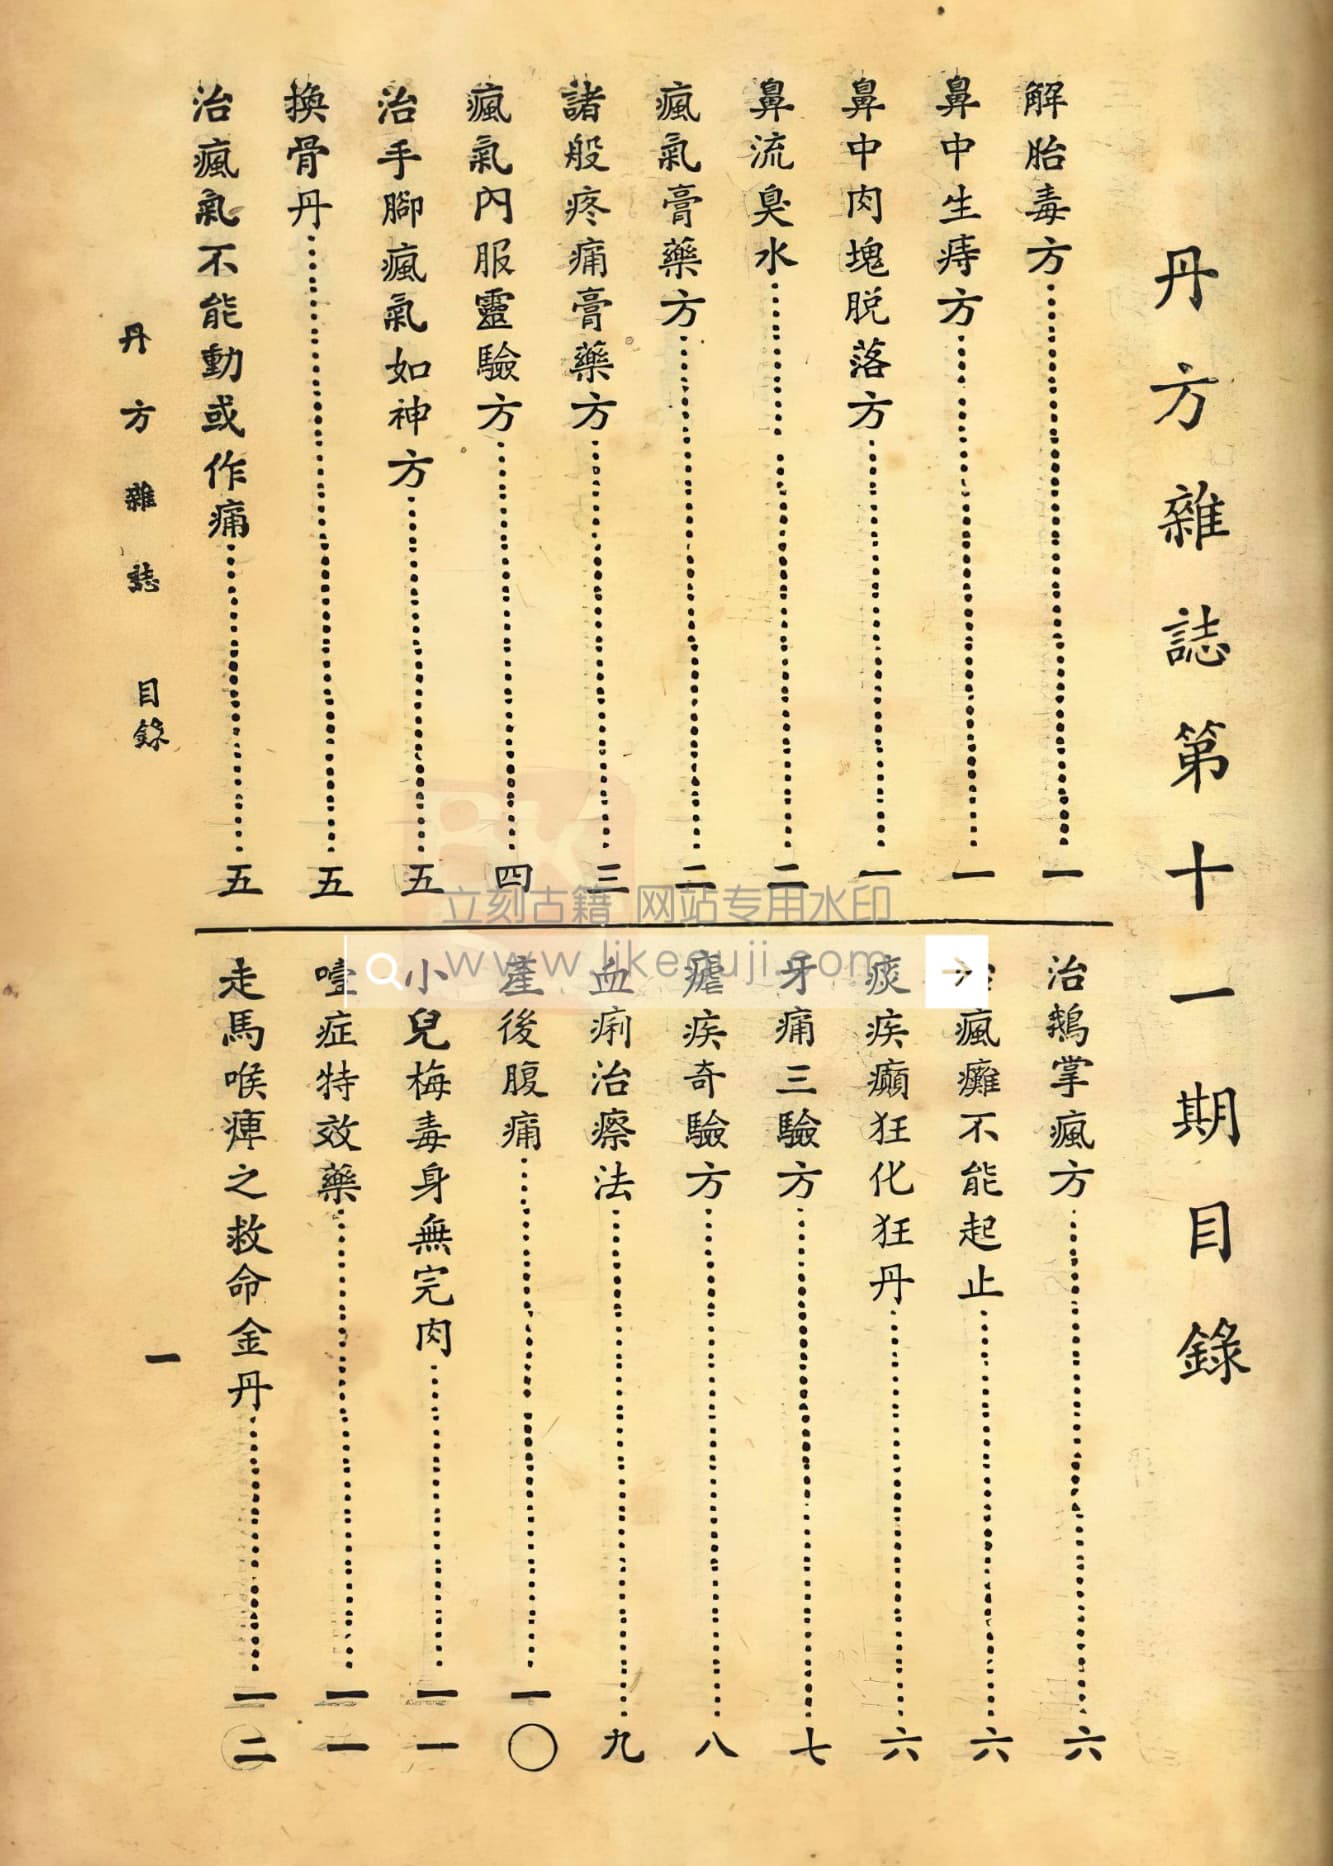 丹方雜誌第十一期目錄
解胎毒方⋯⋯一
鼻中生痔方⋯⋯一
鼻中肉塊脱落方⋯⋯一
鼻流臭水⋯⋯二
瘋氣膏藥方⋯⋯二
諸般疼痛膏藥方⋯⋯三
瘋氣內服靈驗方⋯⋯四
治手腳瘋氣如神方⋯⋯五
換骨丹⋯⋯五
治瘋氣不能動或作痛⋯⋯五
治鵝掌瘋方⋯⋯六
瘋癱不能起止⋯⋯六
痰疾癲狂化狂丹⋯⋯六
牙痛三驗方⋯⋯七
瘧疾奇驗方⋯⋯八
血痢治療法⋯⋯九
產後腹痛⋯⋯一〇
小兒梅毒身無完肉⋯⋯一一
噎症特效藥⋯⋯一一
走馬喉痺之救命金丹⋯⋯一二
丹方雜誌 目錄
一
立刻古籍 网站专用水印
www.likeguji.com